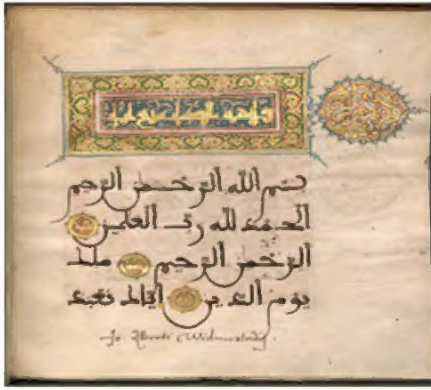 فاتحة الكتاب
بسم الله الرحمن الرحيم
الحمد لله رب العلمين
الرحمن الرحيم ملك
يوم الدين اياك نعبد
Jo. Alberti Widmestadij.